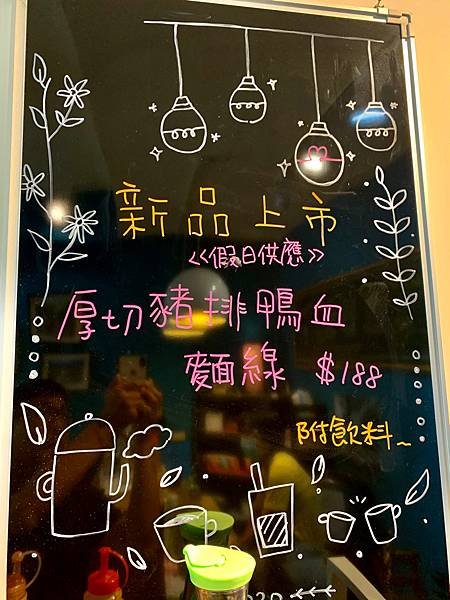 新品上市
<<假日供應>>
厚切豬排鴨血
麵線 $188
附飲料~